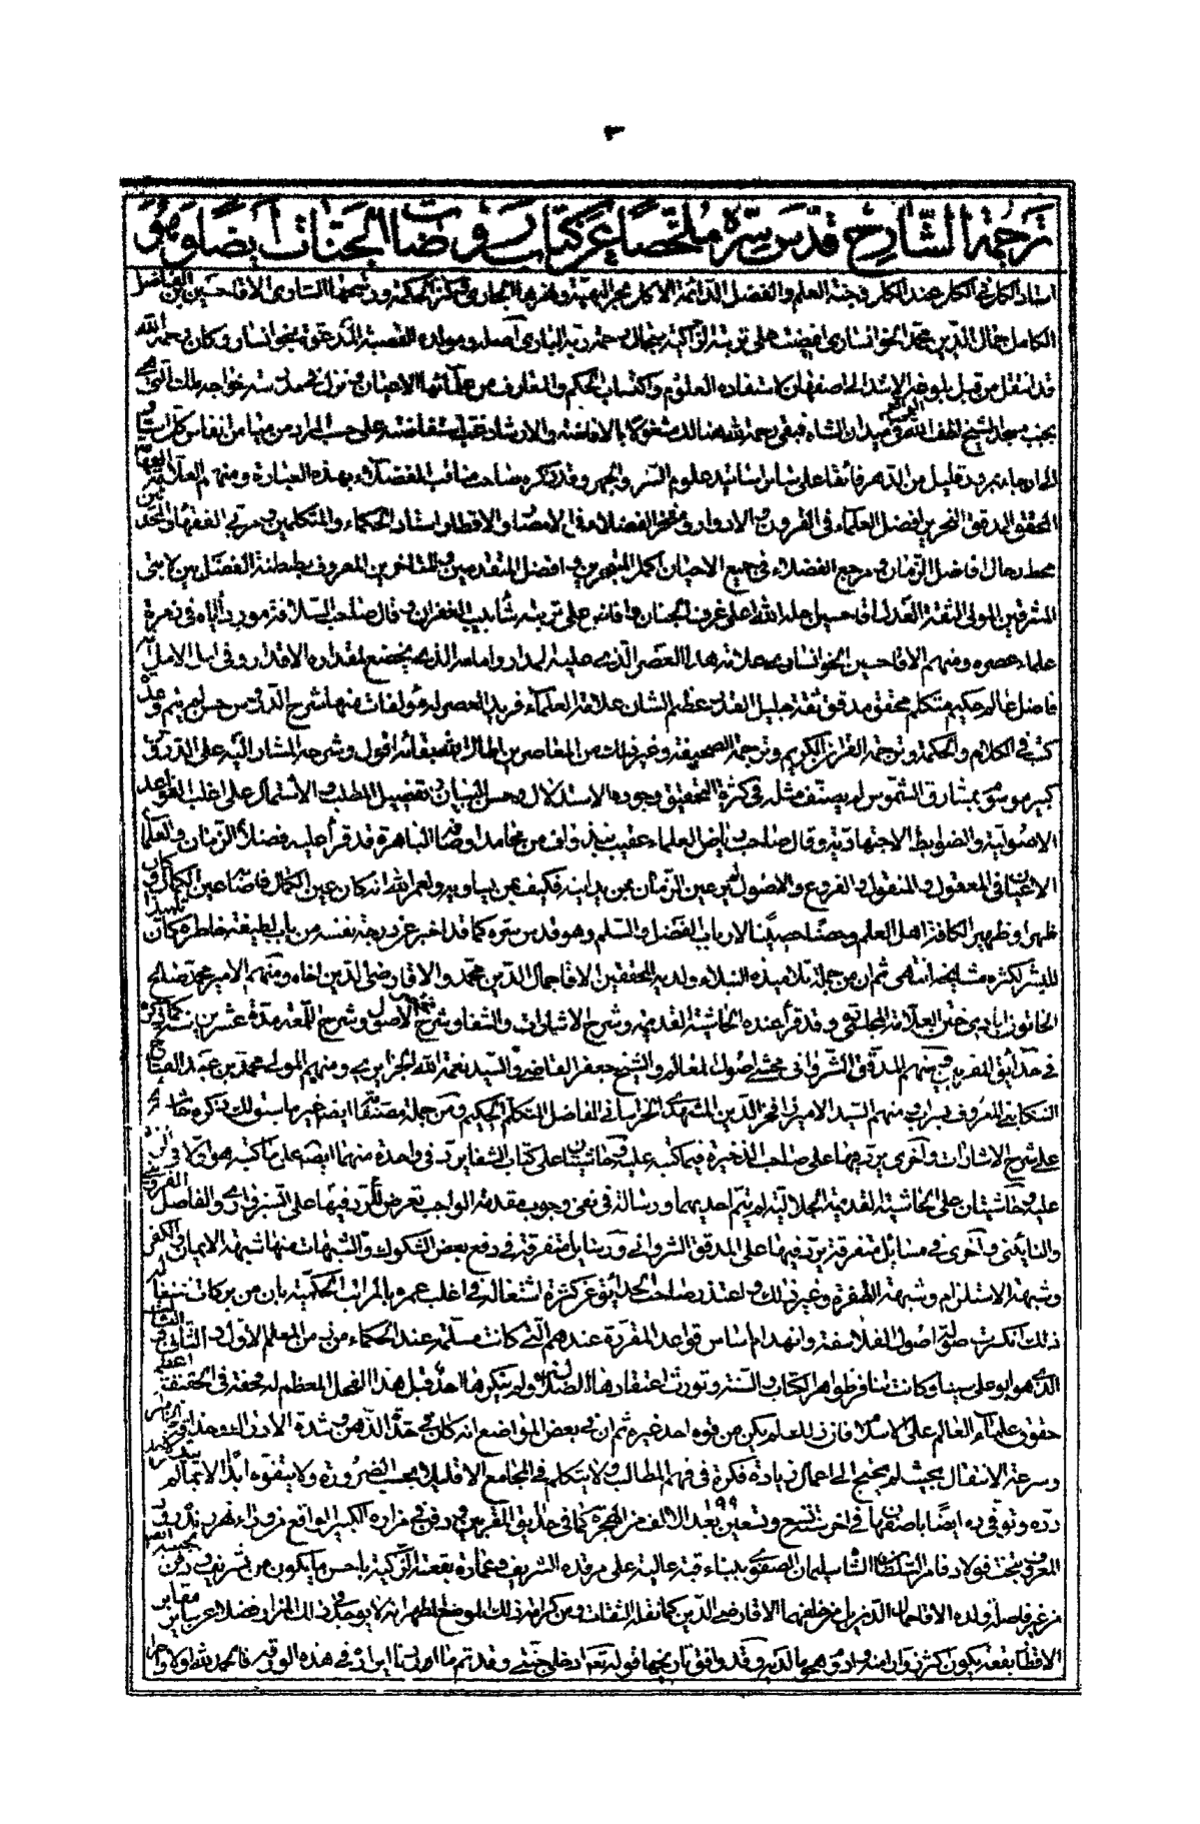 ٣
ترجمة الشارح قدس سره ملخصا عن كتاب روضات الجنات ايضا وهو
استاد الكل في الكل عند الكل وجنة العلم والفضل الدائمة الاكل الاقا حسين بن الفاضل
الكامل جمال الدين محمد الخوانساري افيضت على تربته الزكية رحمة ربه الباري اصله ومولده القصبة المدعوة بخوانسار وكان رحمه الله
قد انتقل من قبل بلوغه الى اصفهان لاستفادة العلوم واكتساب الحكم والمعارف من علمائها الاعيان ونزل بمدرسة خواجه ملك التي هي
بجنب مسجد الشيخ لطف الله في ميدان الشاه فبقي رحمه الله هنالك مشغولا بالافاضة والارشاد على حسب المراد من ميامن انفاس
الى ان صار بعد قليل من الدهر فائقا على سائر اساتيد علوم السر والجهر وقد ذكره صاحب مناقب الفضلاء بهذه العبارة ومنهم العلامة
المحقق المدقق النحرير افضل العلماء في القرون والادوار ومفخر الفضلاء في الامصار والاقطار استاد الحكماء والمتكلمين ومربي الفقهاء والمحدثين
محط رحال افاضل الزمان ومرجع الفضلاء في جميع الاحيان اكمل المتبحرين افضل المتقدمين والمتاخرين المعروف بطنطنة الفضل بين لابتي
المشرقين المولى الثقة العدل اقا حسين احله الله اعلى غرف الجنان وافاض على تربته شآبيب الغفران وقال صاحب السلافة مورد اياه في زمرة
علماء عصره ومنهم الاقا حسين الخوانساري علامة هذا العصر الذي عليه المدار وامامه الذي يخضع لمقداره الاقدار وفي امل الامل
فاضل عالم حكيم متكلم محقق مدقق ثقة جليل القدر عظيم الشان علامة العلماء فريد العصر له مؤلفات منها شرح الدروس حسن لم يتم وعدة
كتب في الكلام والحكمة وترجمة القران الكريم وترجمة الصحيفة وغير ذلك من المعاصرين اطال الله بقائه اقول وشرحه المشار اليه على الدروس
كبير موسوم بمشارق الشموس لم يصنف مثله في كثرة التحقيق وجودة الاستدلال وحسن البيان وتفصيل المطلب والاشتمال على اغلب القواعد
الاصولية والضوابط الاجتهادية وقال صاحب رياض العلماء عقيب نبذ واف من محامد اوصافه الباهرة قد قرأ عليه فضلاء الزمان والعلماء
الاعيان في المعقول والمنقول والفروع والاصول عين الزمان من يدانيه فكيف بمن يساويه ولعمر الله انه كان عين الكمال فاصابه عين الكمال وكان
ظهرا وظهيرا لكافة اهل العلم وحصنا حصينا لارباب الفضل والسلم وهو قدس سره كما قد اخبر عن درجة نفسه من باب لطيفة خاطره كان تلميذ
البشر لكثرة مشايخه انتهى ثم ان من جملة تلامذة النبلاء ولديه المحققين الاقا جمال الدين محمد والاقا رضي الدين اخاه ومنهم الامير محمد صالح
الخاتون ابادي ختن العلامة المجلسي وقد قرأ عنده الحاشية القديمة وشرح الاشارات والشفا وشرح الاصول وشرح اللمعة مدة عشرين سنة كما ذكره
في حدائق المقربين ومنهم المدقق الشرواني محشي اصول المعالم والشيخ جعفر القاضي والسيد نعمة الله الجزايري ومنهم المولى محمد بن عبد الفتاح
التنكابني المعروف بسراب ومنهم السيد الاميرزا فخر الدين المشهدي الخراساني الفاضل المتكلم الحكيم ومن جملة مصنفاته ايضا غير ما سبق لك ذكره حاشية
على شرح الاشارات واخرى يرد فيها على صاحب الذخيرة فيما كتبه عليه وحاشيتان على كتاب الشفا يرد في واحدة منهما ايضا على ما كتبه هو اولا في الرد
عليه وحاشيتان على الحاشية القديمة الجلالية لم يتم احديهما ورسالة في نفي وجوب مقدمة الواجب تعرض للرد فيها على السبزواري والفاضل القزويني
والنائيني واخرى في مسائل متفرقة يرد فيها على المدقق الشرواني ورسايل متفرقة في دفع بعض الشكوك والشبهات منها شبهة الايمان والكفر
وشبهة الاستلزام وشبهة الطفرة وغير ذلك واعتذر صاحب الحدائق عن كثرة اشتغاله في اغلب عمره بالمراتب الحكمية بان من بركات تتبعاته
ذلك انكسرت اصول الفلاسفة وانهدام اساس قواعد المقررة عندهم التي كانت مسلمة عند الحكماء من زمن المعلم الاول الى الثاني والشيخ
الذي هو ابو علي سينا وكانت تنافر ظواهر الكتاب والسنة وتورث اعتقادها الضلال ولم ينكرها احد قبل هذا الفحل المعظم له فحقه في الحقيقة اعظم
حقوق علماء العالم على الاسلام فان ذلك لم يكن من قوة احد غيره ثم ان في بعض المواضع انه كان في حدة الذهن وشدة الادراك
وسرعة الانتقال بحيث لم يحتج الى اعمال زيادة فكرة في فهم المطالب ولا يتكلم في المجامع الا قليلا بحسب الضرورة ولا يتفوه ابدا الا بما لم
رده وتوفي ره ايضا باصفهان في اخر سنة تسع وتسعين ١٠٩٩ بعد الالف من الهجرة كما في حدائق المقربين ودفن في مزاره الكبير الواقع من وراء نهر زنده رود
المعروف بتخت فولاد فامر السلطان الشاه سليمان الصفوي ببناء قبة عالية على مرقده الشريف وعمارة بقعته الزكية باحسن ما يكون من تشريف ودفن
من غير فاصلة ولده الاقا جمال الدين بل من خلفهما الاقا رضي الدين كما نقله الثقات ومن كرامة ذلك الموضع المطهر انه لا يوجد في ذلك المزار وفضلا عن سائر مقابر
الاقطار بقعة يكون اكثر زوارا منه وقد وافق تاريخها قوله تعالى ادخلي جنتي وقد تم ما اردنا ايراده في هذه الورقة فالحمد لله اولا واخرا